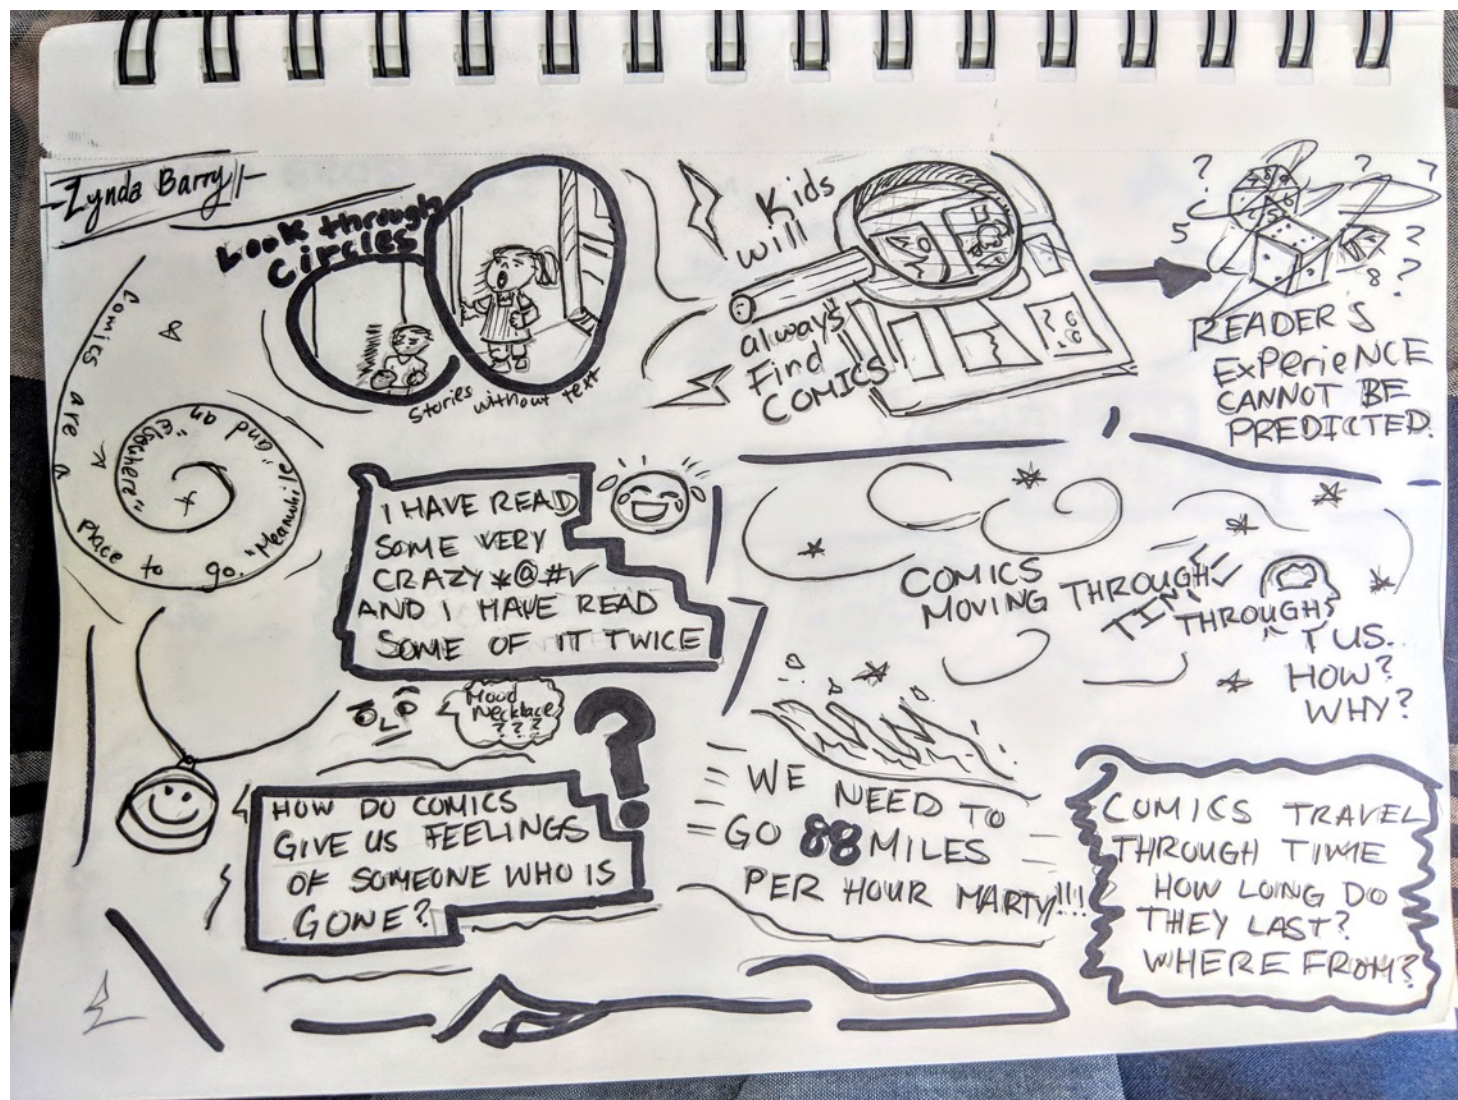 Lynda Barry
Look through
Circles
Stories without text
Comics are a place to go. "Meanwhile" and an "Elsewhere"
Kids
will
always
Find
COMICS
READER'S
EXPERIENCE
CANNOT BE
PREDICTED.
? ? ?
5
?
8 ?
I HAVE READ
SOME VERY
CRAZY *@#✓
AND I HAVE READ
SOME OF IT TWICE
COMICS
MOVING THROUGH
TIME
THROUGH
US.
HOW?
WHY?
Mood
Necklace
? ? ?
?
HOW DO COMICS
GIVE US FEELINGS
OF SOMEONE WHO IS
GONE?
WE NEED TO
GO 88 MILES
PER HOUR MARTY!!!!
COMICS TRAVEL
THROUGH TIME
HOW LONG DO
THEY LAST?
WHERE FROM?